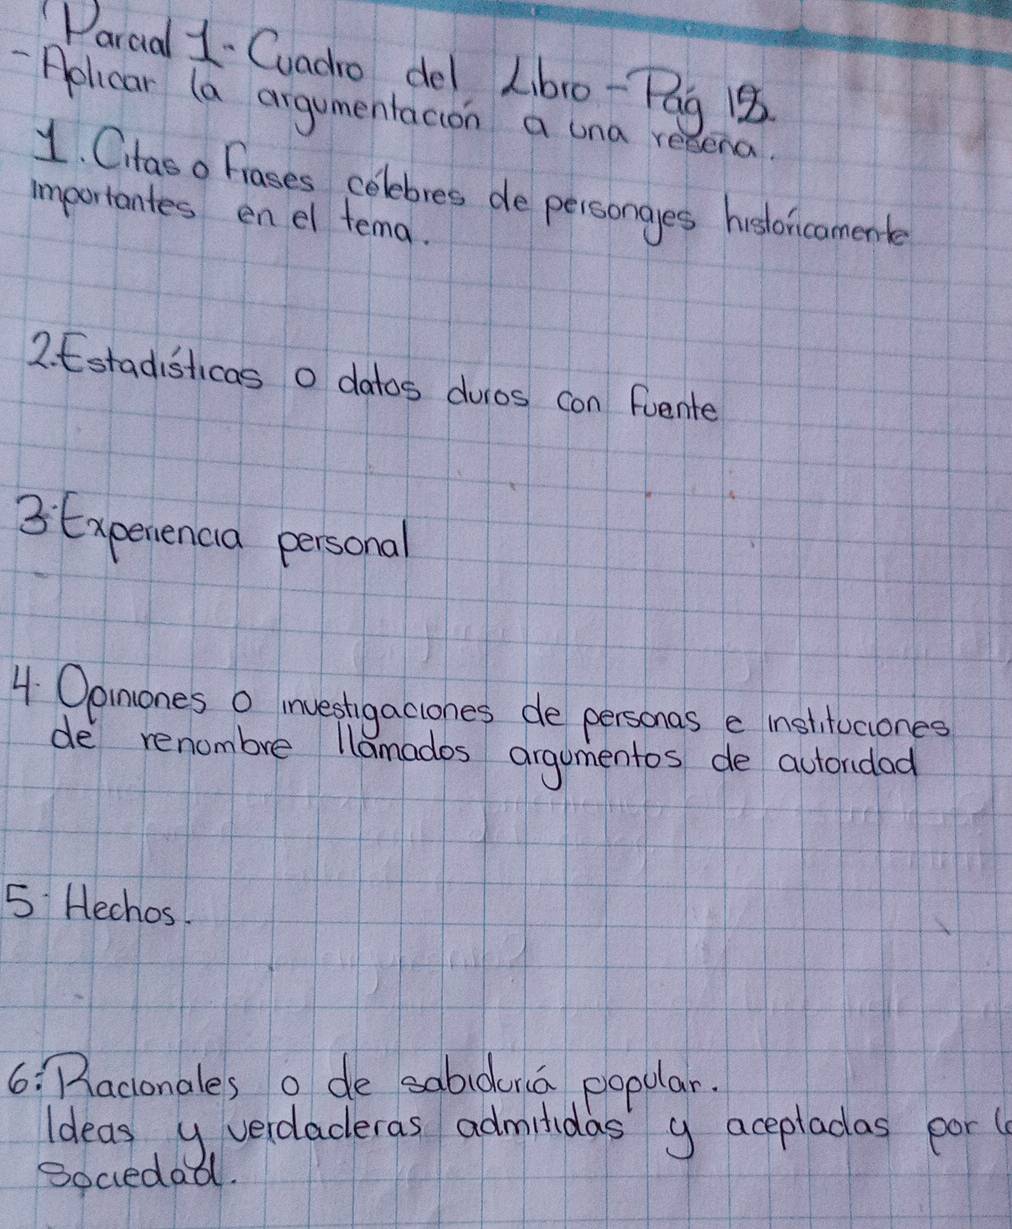 Parcial 1- Cuadro del Libro - Pág 18.
- Aplicar la argumentación a una reseña.
1. Citas o Frases célebres de personajes históricamente
importantes en el tema.
2. Estadísticas o datos duros con fuente
3. Experiencia personal
4. Opiniones o investigaciones de personas e instituciones
de renombre llamados argumentos de autoridad
5. Hechos.
6: Racionales o de sabiduría popular.
Ideas y verdaderas admitidas y aceptadas por
sociedad.